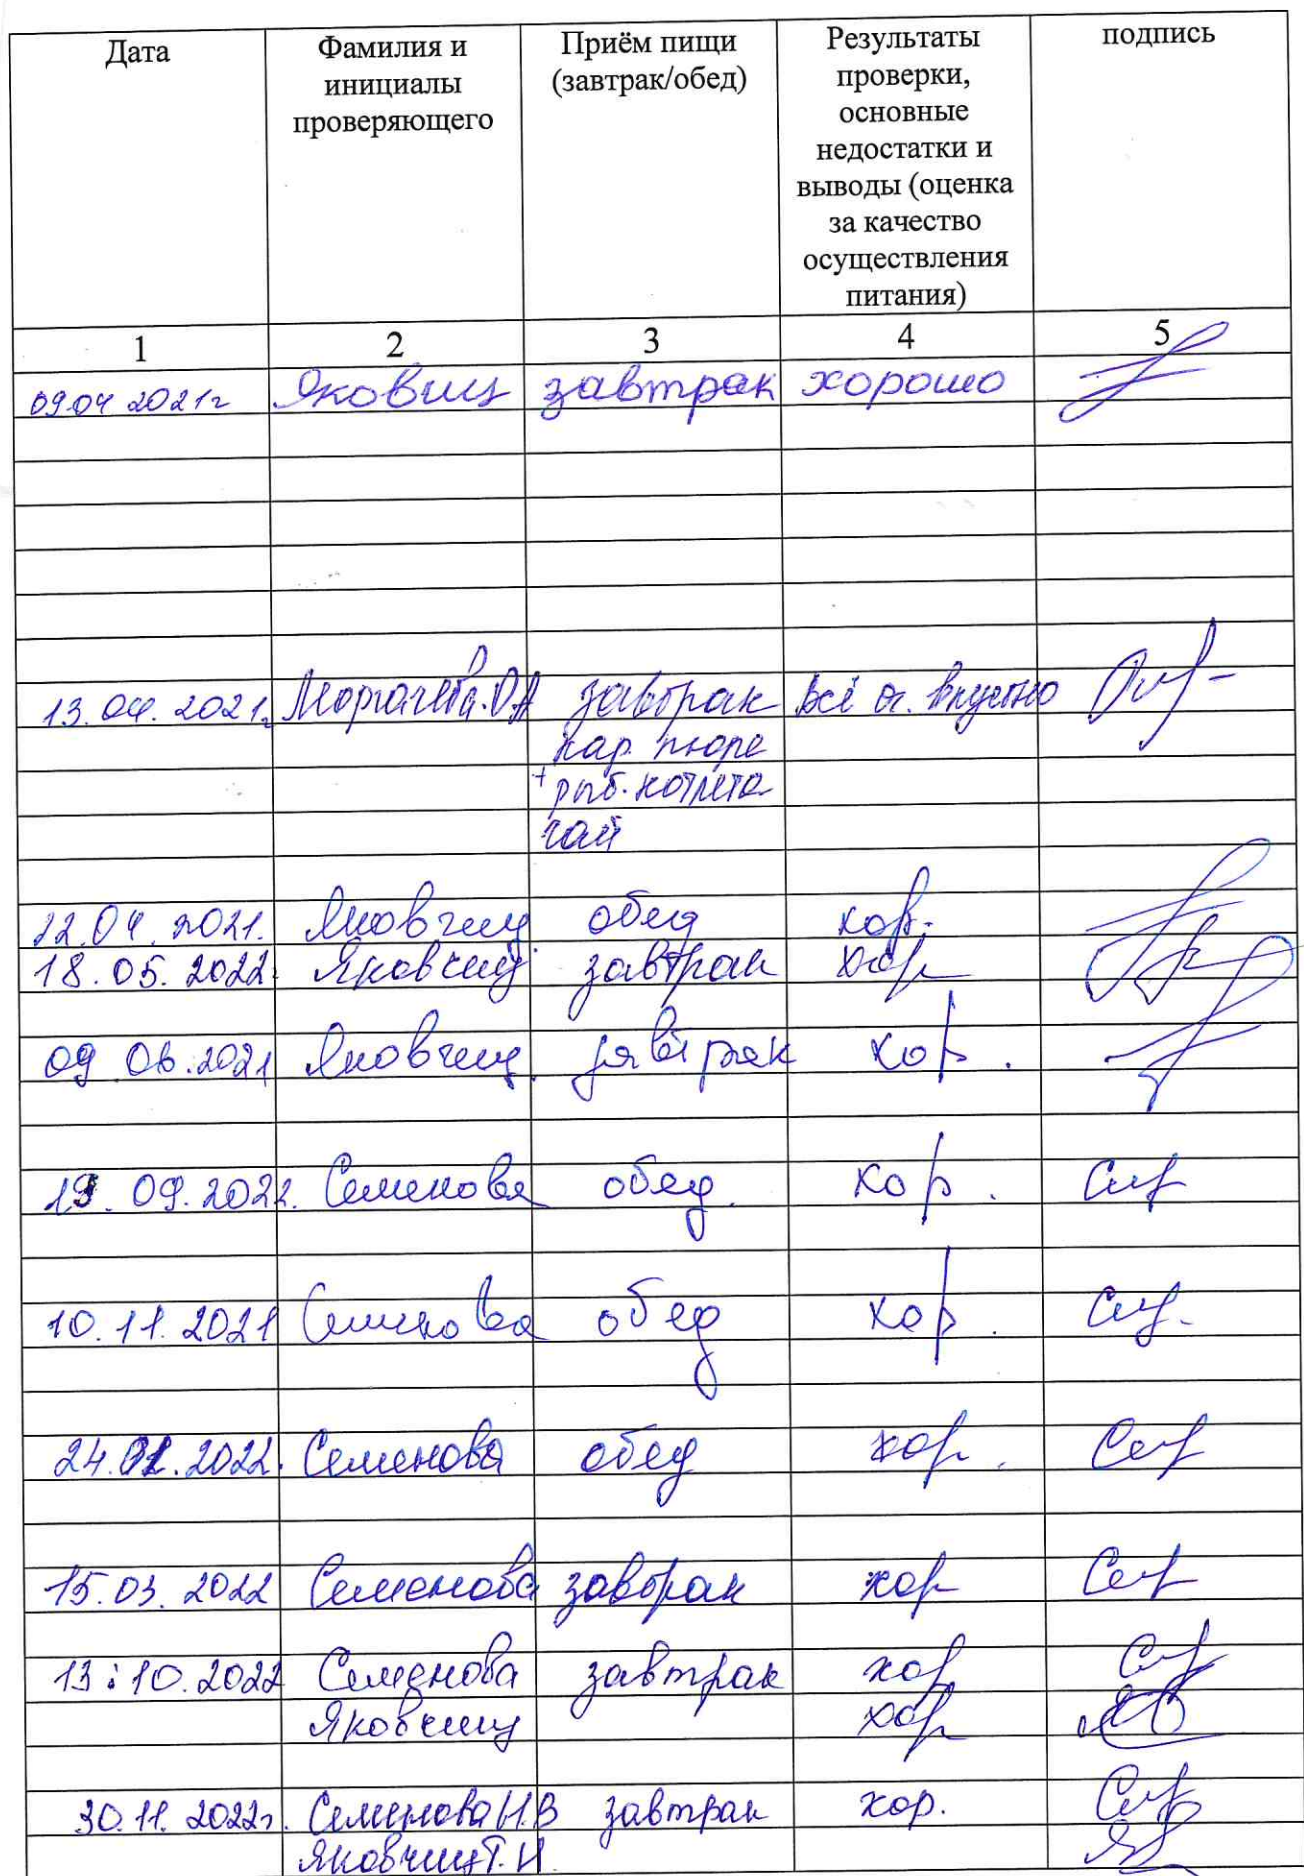 Дата
Фамилия и
инициалы
проверяющего
Приём пищи
(завтрак/обед)
Результаты
проверки,
основные
недостатки и
выводы (оценка
за качество
осуществления
питания)
подпись
1 2 3 4 5
09.04 2021г завтрак хорошо
13.04. 2021г. завтрак всё о. вкусно
кар. пюре
+ рыб. котлета
чай
22.04.2021. Яковчиц обед хор.
18.05.2022. Яковчиц завтрак хор
09 06.2021 Яковчиц завтрак хор.
09.2022. Семенова обед. хор.
10.11.2021 Семенова обед хор.
24. .2022. Семенова обед хор.
15.03.2022 Семенова завтрак хор
13.10.2022 Семенова завтрак хор
Яковчиц хор
30.11.2022г. Семенова Н.В завтрак хор.
Яковчиц Т.И.